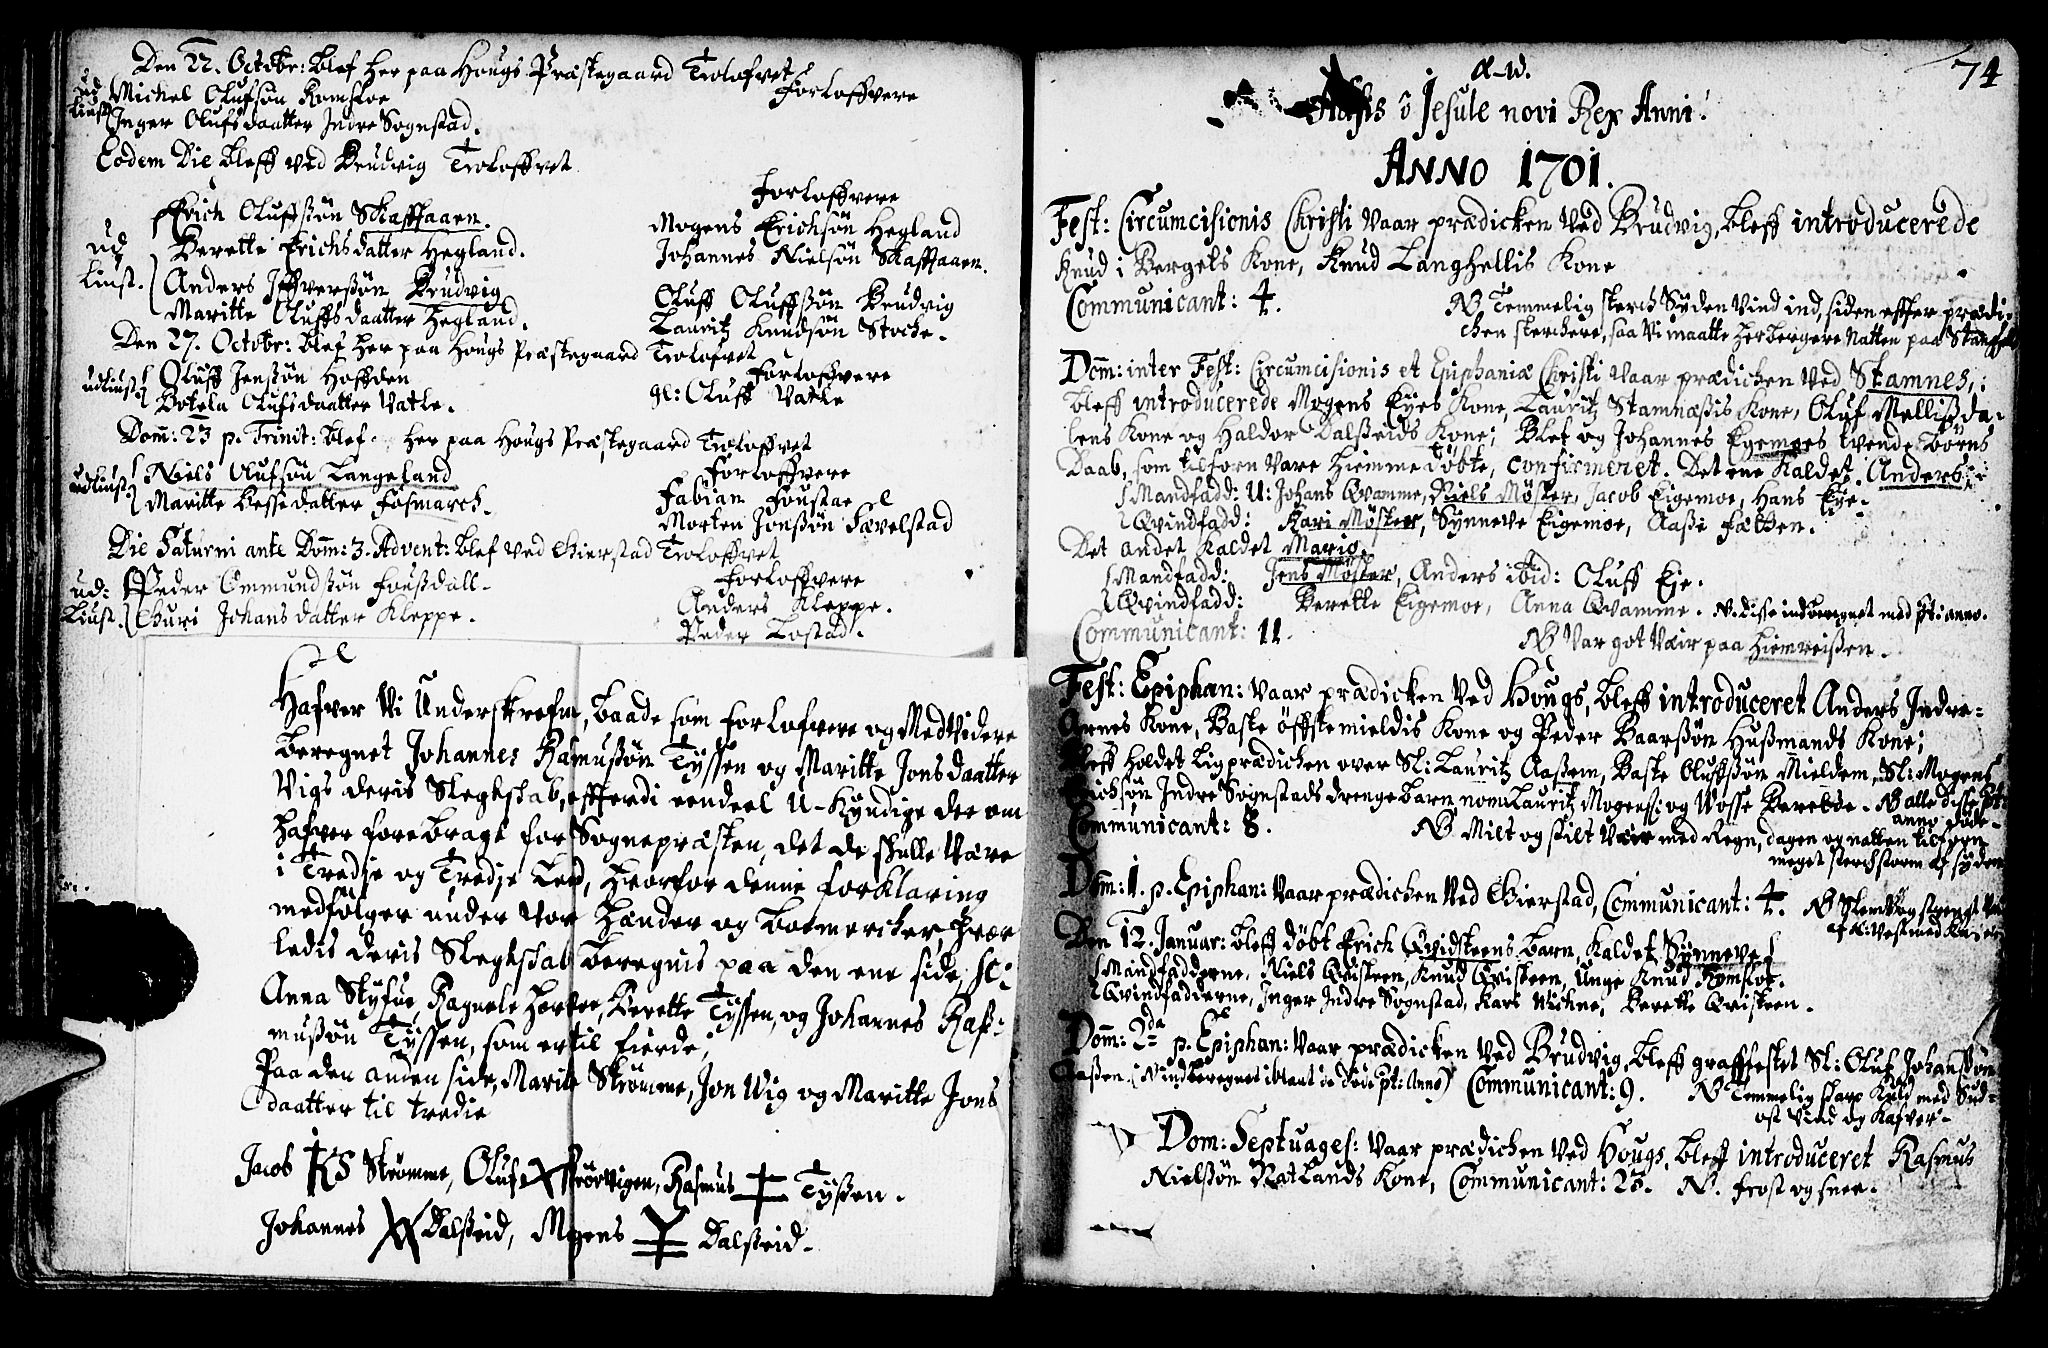 Den 22. Octobr: blef her paa Hougs Præstegaard Trolofvet
Forloffvere
ud Michel Olufsøn Romsloe
liust Inger Olufsdaatter Indre Sognstad.
Eodem Die bleff ved Brudvig Troloffvet
Forloffvere
Erich Oluffsøn Skaftaaen.
Mogens Erichsøn Hegland
ud Berette Erichsdatter Hegland.
Johannes Nielsøn Skaftaaen.
liust. Anders Iffversøn Brudvig
Oluff Oluffsøn Brudvig
Maritte Oluffsdaatter Hegland.
Lauritz Knudsøn Stoche.
Den 27. Octobr: blef her paa Hougs Præstegaard Trolofvet
Forloffvere
udliust Oluff Jensøn Hoffden
gl: Oluff Vatle
Botela Olufsdaatter Vatle.
Dom: 23 p. Trinit: blef her paa Hougs Præstegaard Troloffvet
Forloffvere
udliust Niels Olufsøn Langeland
Fabian Foustae
Maritte Bessedatter Fosmarch.
Morten Jonssøn Sævelstad
Die Saturni ante Dom: 3. Advent: blef ved Gierstad Troloffvet
Forloffvere
ud: Peder Ommundsøn Foussdall.
Anders Kleppe.
liust. Guri Johansdatter Kleppe.
Peder Lostad.
Hafver Vi Underskrefne, baade som forlofvere og Medvidere
beregnet Johannes Rasmussøn Tyssen og Maritte Jonsdaatter
Vigs deris Slegkskab, effterdi eendeel U-kyndige der om
hafver forebragt for Sognepræsten, det de skulle være
i Tredje og Tredje Led, hvorfor denne forklaring
medfølger under vor Hænder og boemercher, hvor
ledis deris Slegkskab beregnis paa den ene side, sc:
Anna Styfue, Ragnele, Berette Tyssen, og Johannes Ras-
mussøn Tyssen, som er til fierde;
Paa den anden side, Marite Strømme, Jon Wig og Maritte Jons
daatter til tredie
Jacob KS Strømme, Oluf X Rørvigen, Rasmus Tyssen.
Johannes Dalseid, Mogens Dalseid.
74
A-ω.
ô Jesule novi Rex Anni!
ANNO 1701.
Fest: Circumcisionis Christi vaar prædicken ved Brudvig, bleff introducerede
Knud i Bergels Kone, Knud Langhellis Kone
Communicant: 4. NB Temmelig sterch Synden Vind ind, siden effter prædi-
chen sterchere, saa Vi maatte herbergere Natten paa
Dom: inter Fest: Circumcisionis et Epiphaniæ Christi vaar prædichen ved Stamnes,
bleff introducerede Mogens Eyes Kone, Lauritz Stamnæssis Kone, Oluf Mellissda-
lens Kone og Haldor Dalseids Kone; Blef og Johannes Egemoes tvende Børns
Daab, som tilforn vare hiemmedøbte, confirmeret. Det ene kaldet Anders
Mandfadd: U: Johans Qvamme, Niels Møster, Jacob Eigemoe, Hans Eye.
Qvindfadd: Kari Møster, Synneve Eigemoe, Aassi
Det andet kaldet Mario.
Mandfadd: Jens Møster, Anders ibid: Oluff Eje.
Qvindfadd: Berette Eigemoe, Anna Qvamme. N. disse indberegnet med pt: anno.
Communicant: 11. NB Var got Væir paa hiemreissen.
Fest: Epiphan: vaar prædicken ved Hougs, bleff introduceret Anders Indre-
Arnes Kone, Baste øffstemieldis Kone og Peder Baarsøn Hussmands Kone;
Bleff holdet ligprædichen over Sl: Lauritz Aassem, Baste Oluffsøn Mieldem, Sl: Mogens
Erichsøn Indre Sognstads drengebarn nom: Lauritz Mogens: og Wosse NB alle disse pt:
anno døde.
Communicant: 8. NB Milt og stilt Væir med Regn, dagen og natten tilforn
meget sterch storm af synden
Dom: 1. p. Epiphan: vaar prædichen ved Gierstad, Communicant: 4. NB
Den 12. Januar: bleff døbt Erich Qvidsteens barn, kaldet Synneve
Mandfadderne, Niels Qvisteen, Knud Qvisteen, Unge Knud Romsloe.
Qvindfadderne, Inger Indre Sognstad, Kari Wichne, Berette Qvisteen.
Dom: 2da p. Epiphan: vaar prædicken ved Brudvig, bleff graffestet Sl: Oluf Johansøn
Aassen. (N indberegnet iblant de døde pt: Anno) Communicant: 9. NB Temmelig skarp Kuld med Sud-
ost Vind og Kafver.
Dom: Septuages: vaar prædichen ved Hougs, bleff introduceret Rasmus
Nielssøn Natlands Kone, Communicant: 23. N. frost og snee.